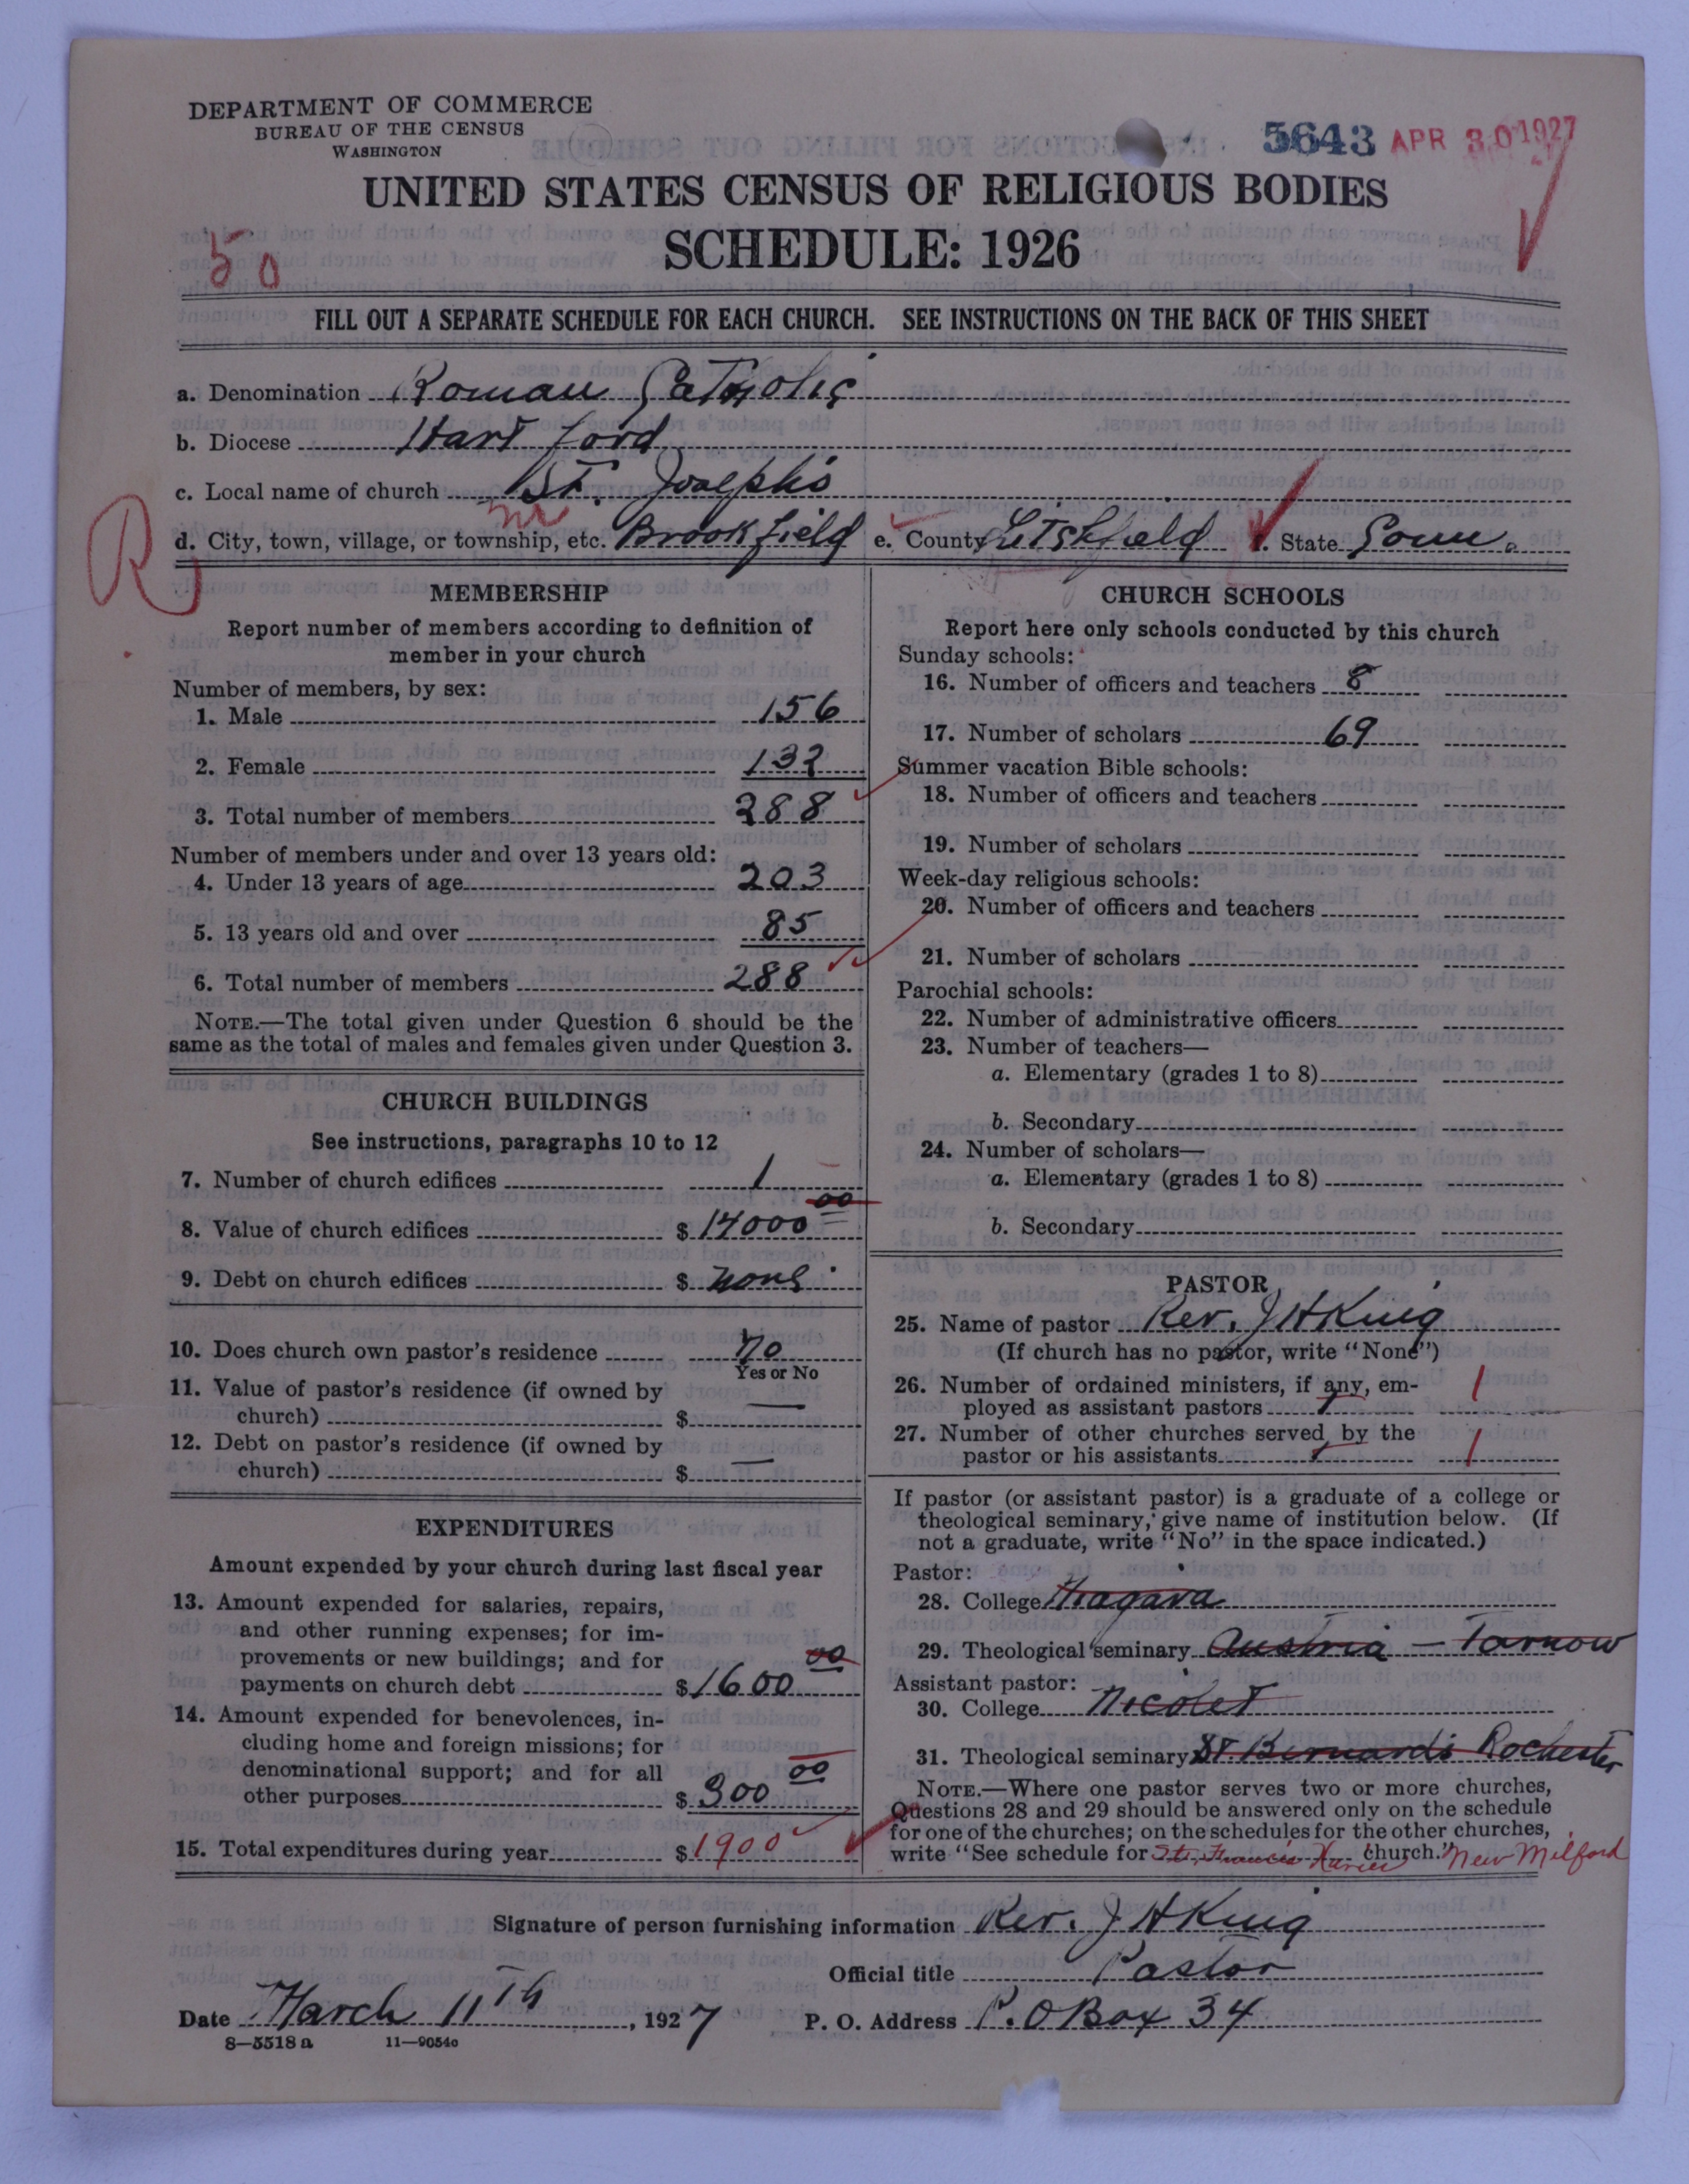 DEPARTMENT OF COMMERCE
BUREAU OF THE CENSUS
WASHINGTON
5643 APR 30 1927
UNITED STATES CENSUS OF RELIGIOUS BODIES
SCHEDULE: 1926
50
FILL OUT A SEPARATE SCHEDULE FOR EACH CHURCH. SEE INSTRUCTIONS ON THE BACK OF THIS SHEET
a. Denomination Roman Catholic
b. Diocese Hartford
c. Local name of church St. Joseph's
nr
d. City, town, village, or township, etc. Brookfield e. County Litchfield f. State Conn.
R
MEMBERSHIP
Report number of members according to definition of
member in your church
Number of members, by sex:
1. Male 156
2. Female 132
3. Total number of members 288
Number of members under and over 13 years old:
4. Under 13 years of age 203
5. 13 years old and over 85
6. Total number of members 288
NOTE.—The total given under Question 6 should be the
same as the total of males and females given under Question 3.
CHURCH BUILDINGS
See instructions, paragraphs 10 to 12
7. Number of church edifices 1
8. Value of church edifices $ 14000 00
9. Debt on church edifices $ none
10. Does church own pastor's residence no
Yes or No
11. Value of pastor's residence (if owned by
church) $ —
12. Debt on pastor's residence (if owned by
church) $ —
EXPENDITURES
Amount expended by your church during last fiscal year
13. Amount expended for salaries, repairs,
and other running expenses; for im-
provements or new buildings; and for
payments on church debt $ 1600 00
14. Amount expended for benevolences, in-
cluding home and foreign missions; for
denominational support; and for all
other purposes $ 300 00
15. Total expenditures during year $ 1900
CHURCH SCHOOLS
Report here only schools conducted by this church
Sunday schools:
16. Number of officers and teachers 8
17. Number of scholars 69
Summer vacation Bible schools:
18. Number of officers and teachers
19. Number of scholars
Week-day religious schools:
20. Number of officers and teachers
21. Number of scholars
Parochial schools:
22. Number of administrative officers
23. Number of teachers—
a. Elementary (grades 1 to 8)
b. Secondary
24. Number of scholars—
a. Elementary (grades 1 to 8)
b. Secondary
PASTOR
25. Name of pastor Rev. J H King
(If church has no pastor, write "None")
26. Number of ordained ministers, if any, em-
ployed as assistant pastors 1 1
27. Number of other churches served by the
pastor or his assistants 1 1
If pastor (or assistant pastor) is a graduate of a college or
theological seminary, give name of institution below. (If
not a graduate, write "No" in the space indicated.)
Pastor:
28. College Niagara
29. Theological seminary Austria - Tarnow
Assistant pastor:
30. College Nicolet
31. Theological seminary St Bernards Rochester
NOTE.—Where one pastor serves two or more churches,
Questions 28 and 29 should be answered only on the schedule
for one of the churches; on the schedules for the other churches,
write "See schedule for St. Francis Xavier church." New Milford
Signature of person furnishing information Rev. J H King
Official title Pastor
Date March 11th, 1927 P. O. Address P.O Box 34
8—5518 a 11—9054c